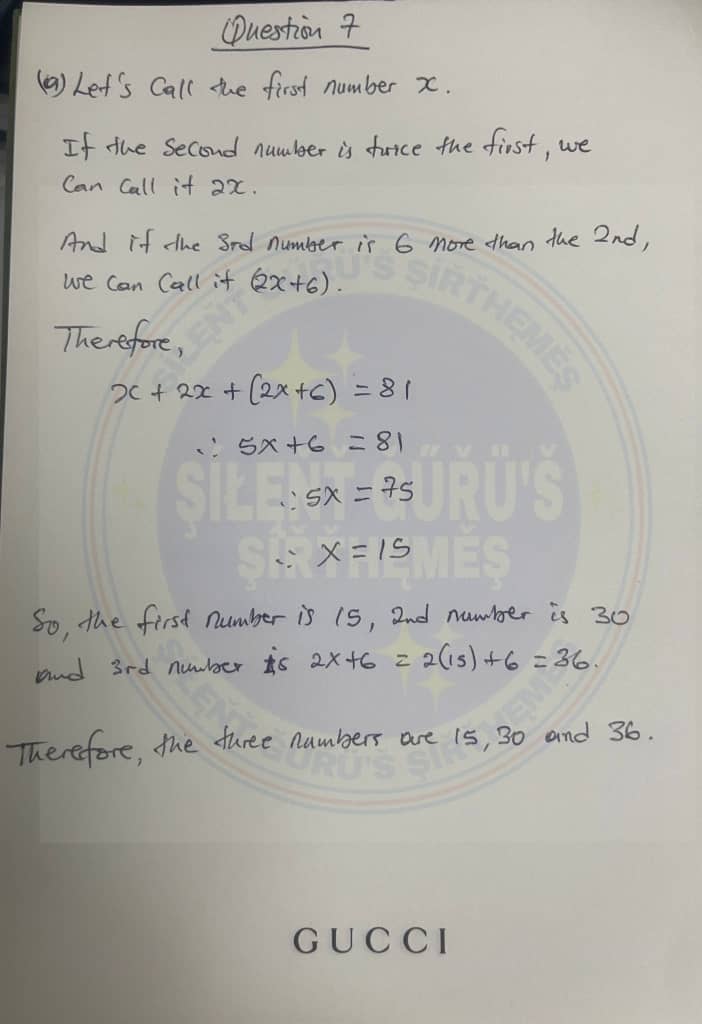 Question 7
(a) Let's Call the first number x.
If the Second number is twice the first, we
Can Call it 2x.
And if the 3rd number is 6 more than the 2nd,
we Can Call it (2x+6).
Therefore,
x + 2x + (2x+6) = 81
∴ 5x+6 = 81
∴ 5x = 75
∴ x = 15
So, the first number is 15, 2nd number is 30
and 3rd number is 2x+6 = 2(15)+6 = 36.
Therefore, the three numbers are 15, 30 and 36.
ŞIŁEŃŤ GŰŘÜ'Š
ŞİŘŤHĘMĚŞ
GUCCI